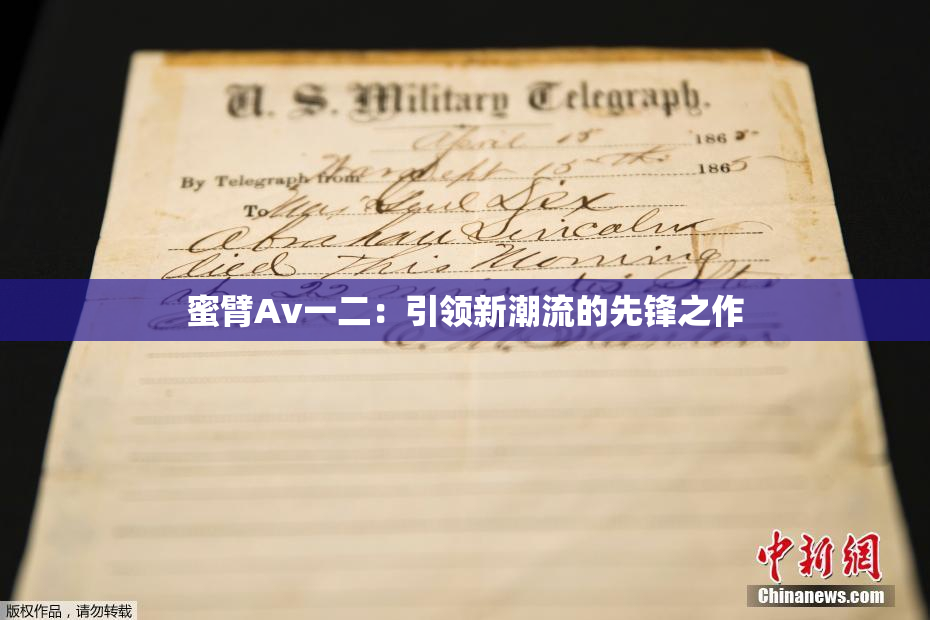 U. S. Military Telegraph.
April 15 1865
By Telegraph from War Dept 15th 1865
To Maj Genl Dix
Abraham Lincoln
died This Morning
at 22 minutes after
蜜臂Av一二：引领新潮流的先锋之作
E. M. Stanton
中新网
Chinanews.com
版权作品，请勿转载